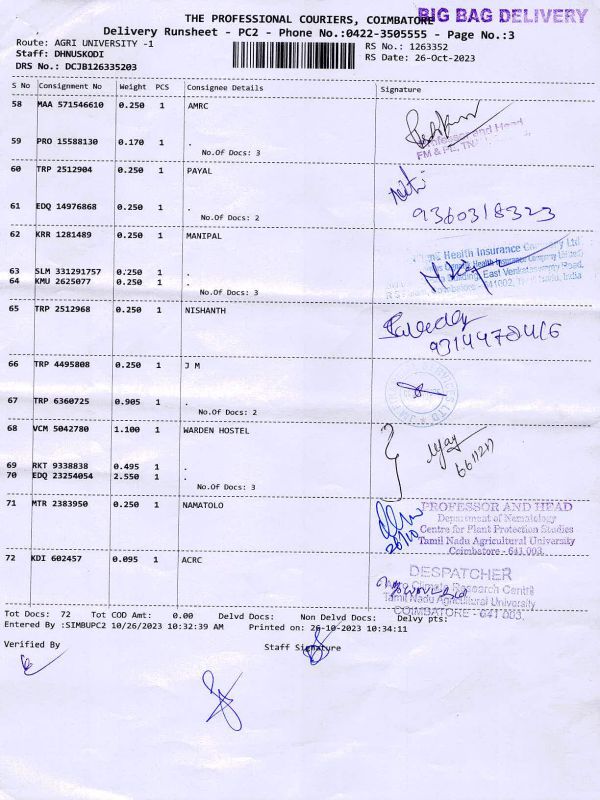 BIG BAG DELIVERY
THE PROFESSIONAL COURIERS, COIMBATORE
Delivery Runsheet - PC2 - Phone No.:0422-3505555 - Page No.:3
Route: AGRI UNIVERSITY -1
Staff: DHNUSKODI
DRS No.: DCJB126335203
RS No.: 1263352
RS Date: 26-Oct-2023
S No Consignment No Weight PCS Consignee Details Signature
58 MAA 571546610 0.250 1 AMRC
Professor and Head
59 PRO 15588130 0.170 1 .
No.Of Docs: 3
60 TRP 2512904 0.250 1 PAYAL
9360318323
61 EDQ 14976868 0.250 1 .
No.Of Docs: 2
62 KRR 1281489 0.250 1 MANIPAL
Health Insurance Company Ltd
63 SLM 331291757 0.250 1 .
64 KMU 2625077 0.250 1 .
No.Of Docs: 3
65 TRP 2512968 0.250 1 NISHANTH
66 TRP 4495808 0.250 1 J M
67 TRP 6360725 0.905 1 .
No.Of Docs: 2
68 VCM 5042780 1.100 1 WARDEN HOSTEL
69 RKT 9338838 0.495 1 .
70 EDQ 23254054 2.550 1 .
No.Of Docs: 3
71 MTR 2383950 0.250 1 NAMATOLO
26/10
PROFESSOR AND HEAD
Department of Nematology
Centre for Plant Protection Studies
Tamil Nadu Agricultural University
Coimbatore - 641 003.
72 KDI 602457 0.095 1 ACRC
DESPATCHER
Agro Climate Research Centre
Tamil Nadu Agricultural University
COIMBATORE - 641 003.
Tot Docs: 72 Tot COD Amt: 0.00 Delvd Docs: Non Delvd Docs: Delvy pts:
Entered By :SIMBUPC2 10/26/2023 10:32:39 AM Printed on: 26-10-2023 10:34:11
Verified By
Staff Signature